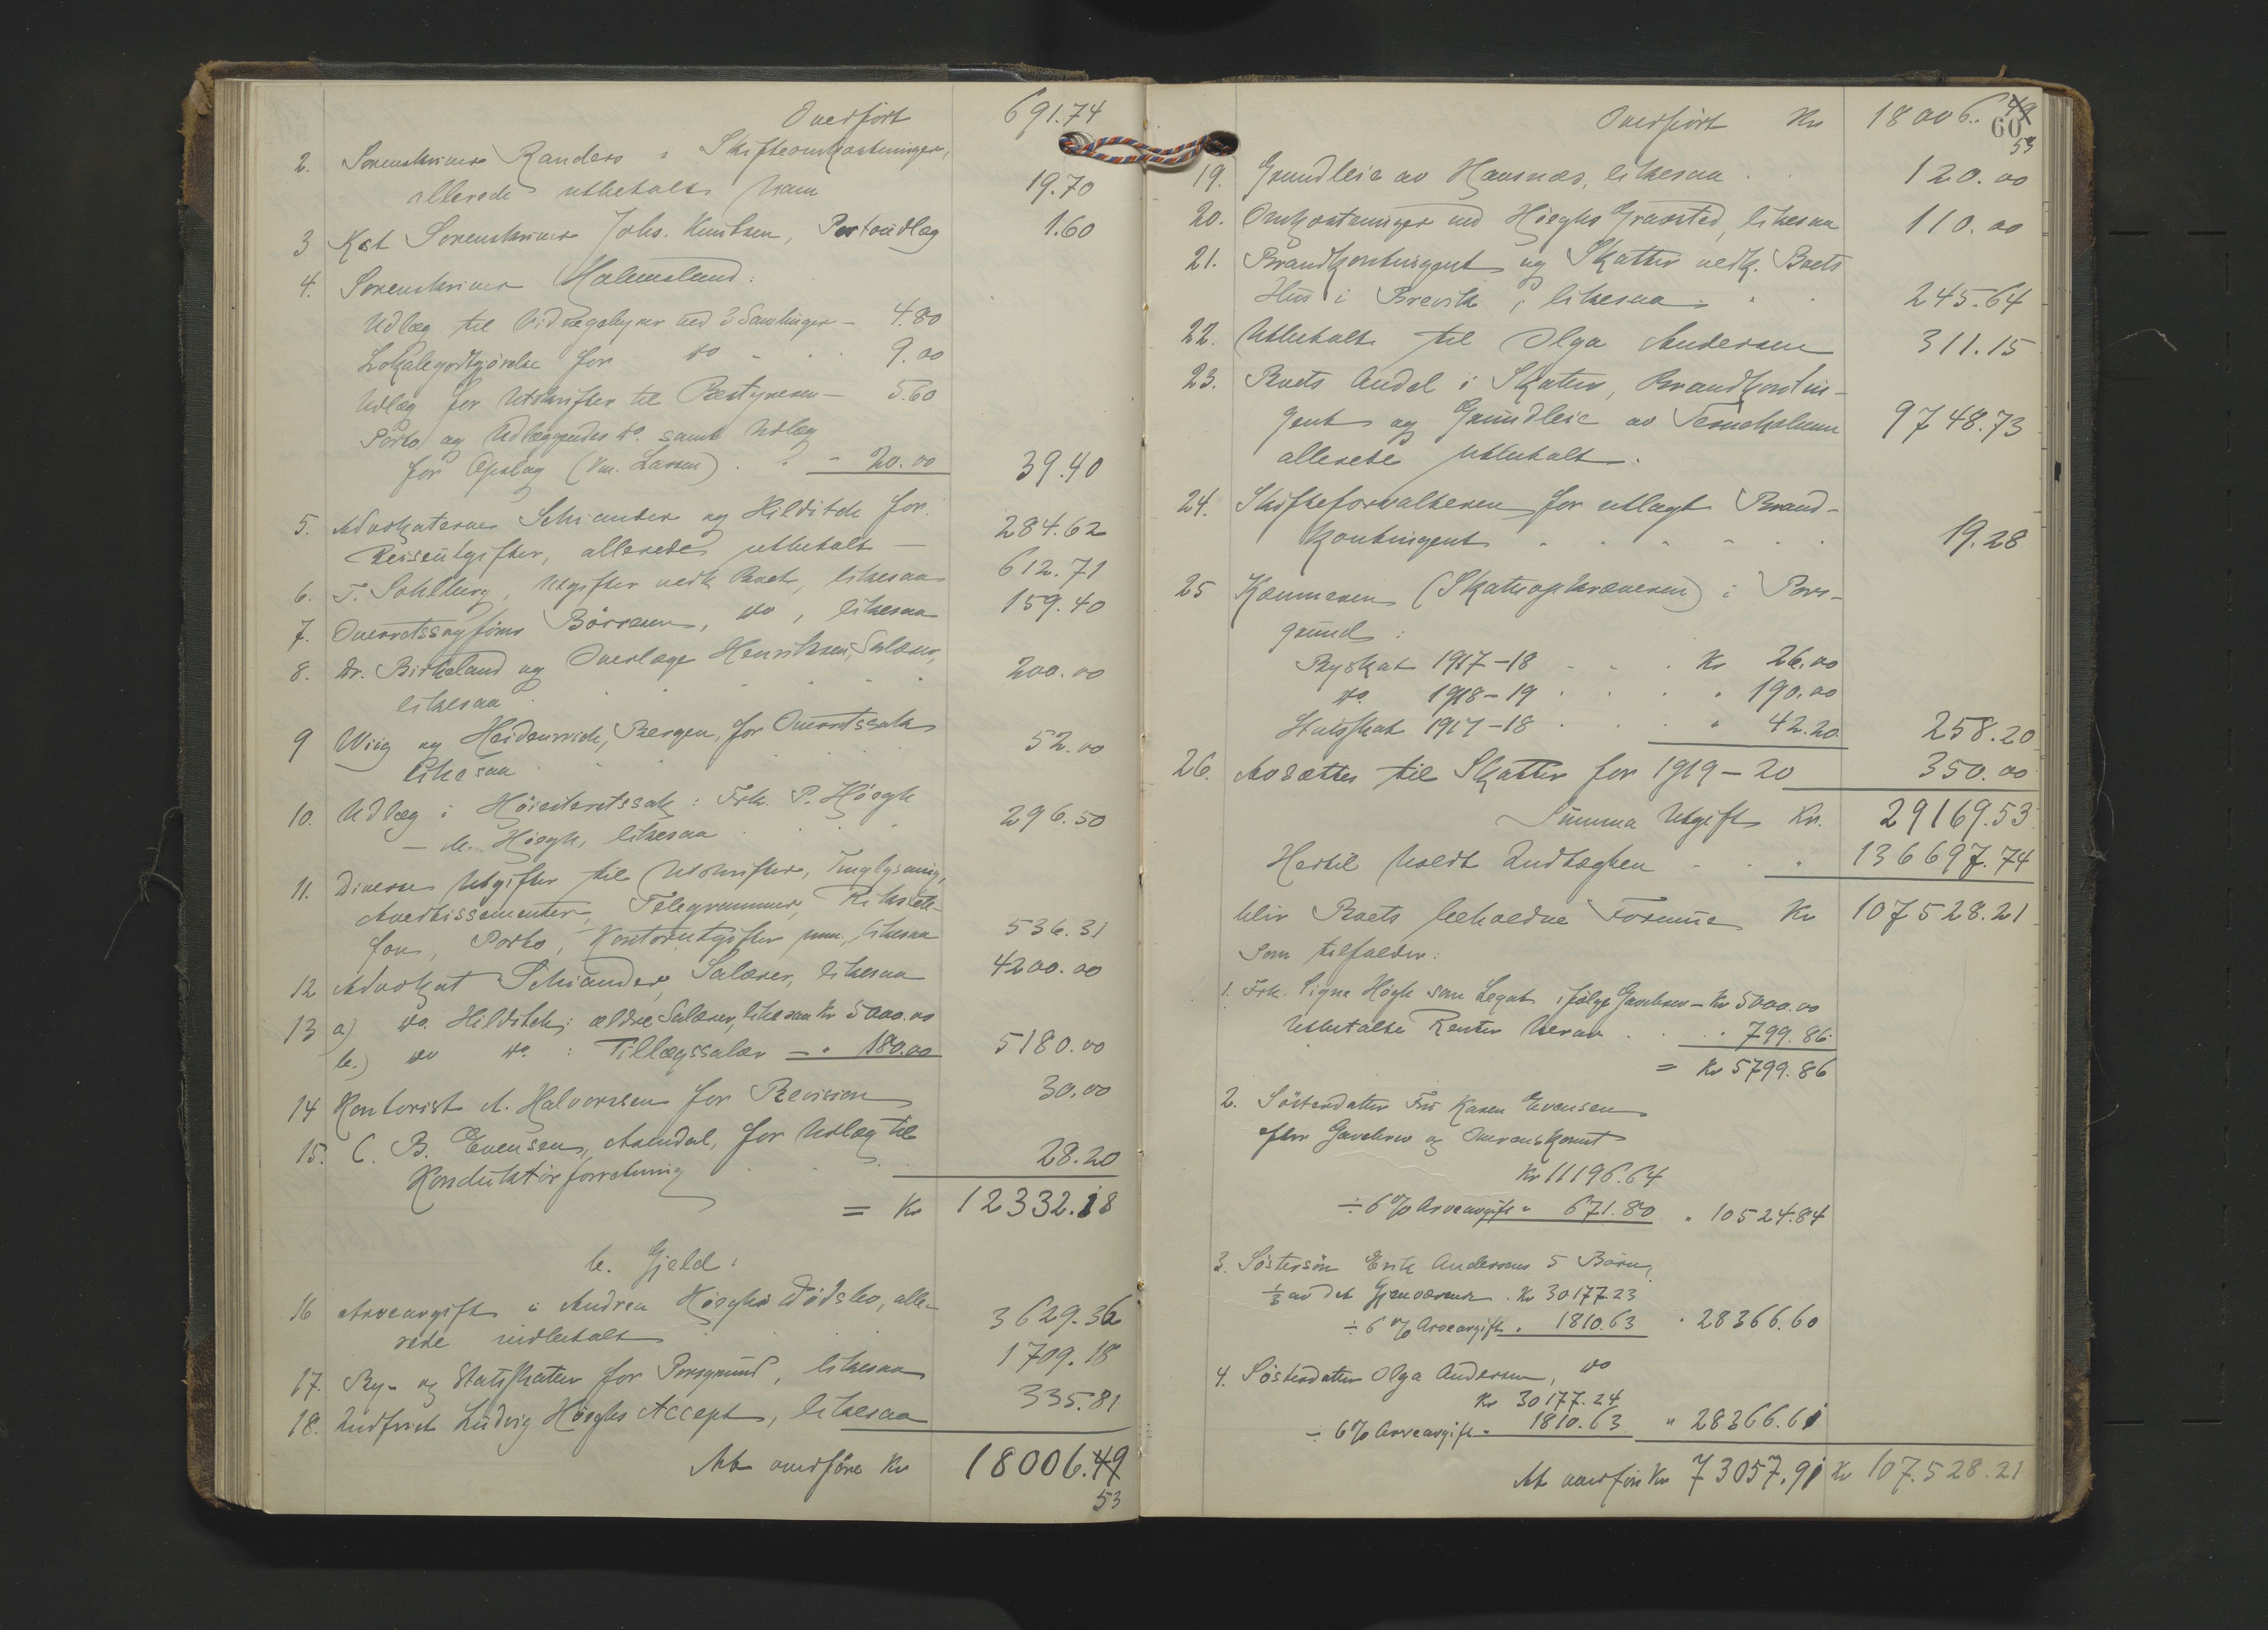 Overført 691.74
2. Sorenskriver Randers : Skifteomkostninger,
allerede utbetalt ham 19.70
3 Kst Sorenskriver Johs. Knutsen, Portoudlæg 1.60
4. Sorenskriver Malmsland:
Udlæg til Vidnegebyrer ved 3 Samlinger – 4.80
Lokalegodtgjørelse for do - 9.00
Udlæg for Utskrifter til Bestyreren – 5.60
Porto og Udlæggendes do. samt Udlæg
for Opslag (Vm. Larsen) . - 20.00 39.40
5. Advokaterne Schiander og Hilditch for
Reiseutgifter, allerede utbetalt – 284.62
6. F. Sohlburg, Utgifter vedk Boet, likesaa 612.71
7. Overretssagfører Börresen, do, likesaa 159.40
8. Dr. Birkeland og Overlæge Henriksen, Salærer,
likesaa 200.00
9 Wiig og Heidenreich, Bergen, for Overretssak
likesaa 52.00
10. Udlæg i Høiesteretssak: Frk. P. Høegh
– M. Høegh, likesaa 296.50
11. Diverse Utgifter til Utskrifter, Tinglysning,
Avertissementer, Telegrammer, Rikstele-
fon, Porto, Kontorutgifter mm., likesaa 536.31
12 Advokat Schiander, Salærer, likesaa 4200.00
13 a) do. Hilditch: ældre Salærer, likesaa Kr 5000.00
b.) do do. : Tillægssalær – " 180.00 5180.00
14 Kontorist A. Halvorsen for Revision 30.00
15. C. B. Evensen, Arendal, for Udlæg til
Konduktørforretning 28.20
= Kr 12332.18
b. Gjeld:
16 Arveavgift i Andrea Høeghs Dødsbo, alle-
rede indbetalt 3629.36
17. By- og Statsskatter for Porsgrund, likesaa 1709.18
18. Indfriet Ludvig Høeghs Accept, likesaa 335.81
At overføre Kr 18006.49
53
Overført Kr 18006.49
60
53
19. Grundleie av Hausnæs, likesaa 120.00
20. Omkostninger ved Høeghs Gravsted, likesaa 110.00
21. Brandkontingent og Skatter vedk. Boets
Hus i Brevik, likesaa 245.64
22. Utbetalt til Olga Andersen 311.15
23. Boets Andel i Skatter, Brandkontin-
gent og Grundleie av Terneholmen 9748.73
allerede utbetalt.
24. Skifteforvalteren for utlagt Brand-
kontingent 19.28
25 Kæmneren (Skatteopkræveren) i Pors-
grund:
Byskat 1917-18 . Kr 26.00
do. 1918-19 . " 190.00
Statsskat 1917-18 . " 42.20 258.20
26. Avsættes til Skatter for 1919-20 350.00
Summa Utgift Kr. 29169.53
Hertil holdt Indtægten - " 136697.74
blir Boets beholdne Formue Kr 107528.21
som tilfalder:
1. Frk. Signe Høegh som Legat ifølge Gavebrev – Kr 5000.00
Utbetalte Renter herav . " 799.86
= Kr 5799.86
2. Søsterdatter Fru Karen Evensen
efter Gavebrev og Overenskomst
Kr 11196.64
÷ 6% Arveavgift " 671.80 " 10524.84
3. Søstersøn Erik Andersens 5 Børn,
⅓ av det Gjenværende . Kr 30177.23
÷ 6% Arveavgift " 1810.63 " 28366.60
4. Søsterdatter Olga Andersen, do
Kr 30177.24
÷ 6% Arveavgift " 1810.63 " 28366.61
At overføre Kr 73057.91 Kr 107.528.21